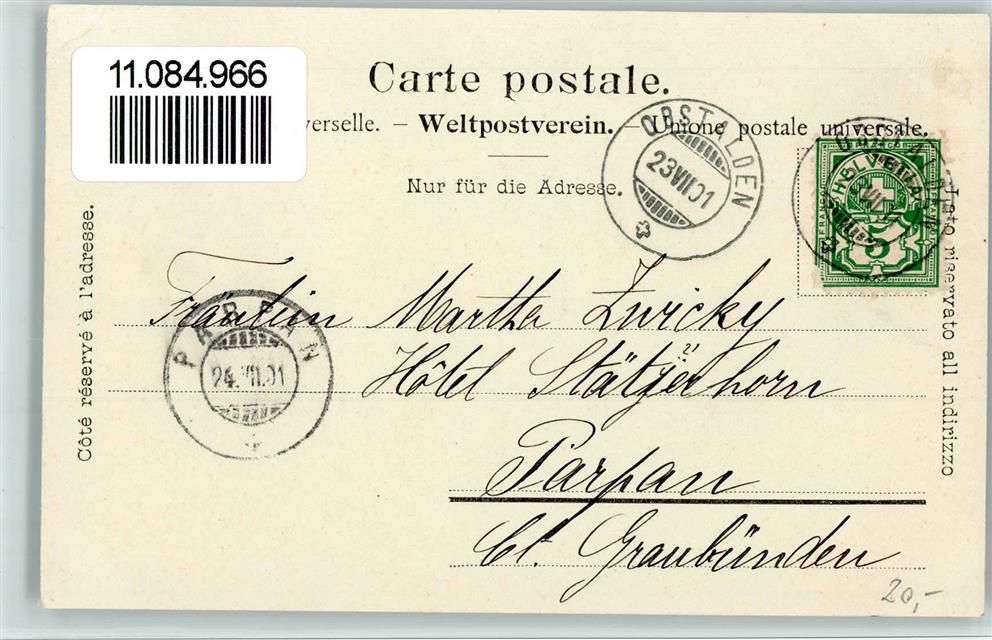 11.084.966
Carte postale.
verselle. – Weltpostverein. – Unione postale universale.
Nur für die Adresse.
Côté réservé à l'adresse.
Lato riservato all indirizzo
OBSTALDEN
23 VII 01
OBSTALDEN
HELVETIA
FRANCO
5
PARPAN
24. VII. 01
Fräulein Martha Zwicky
Hôtel Stätzerhorn
Parpan
Ct. Graubünden
20,-